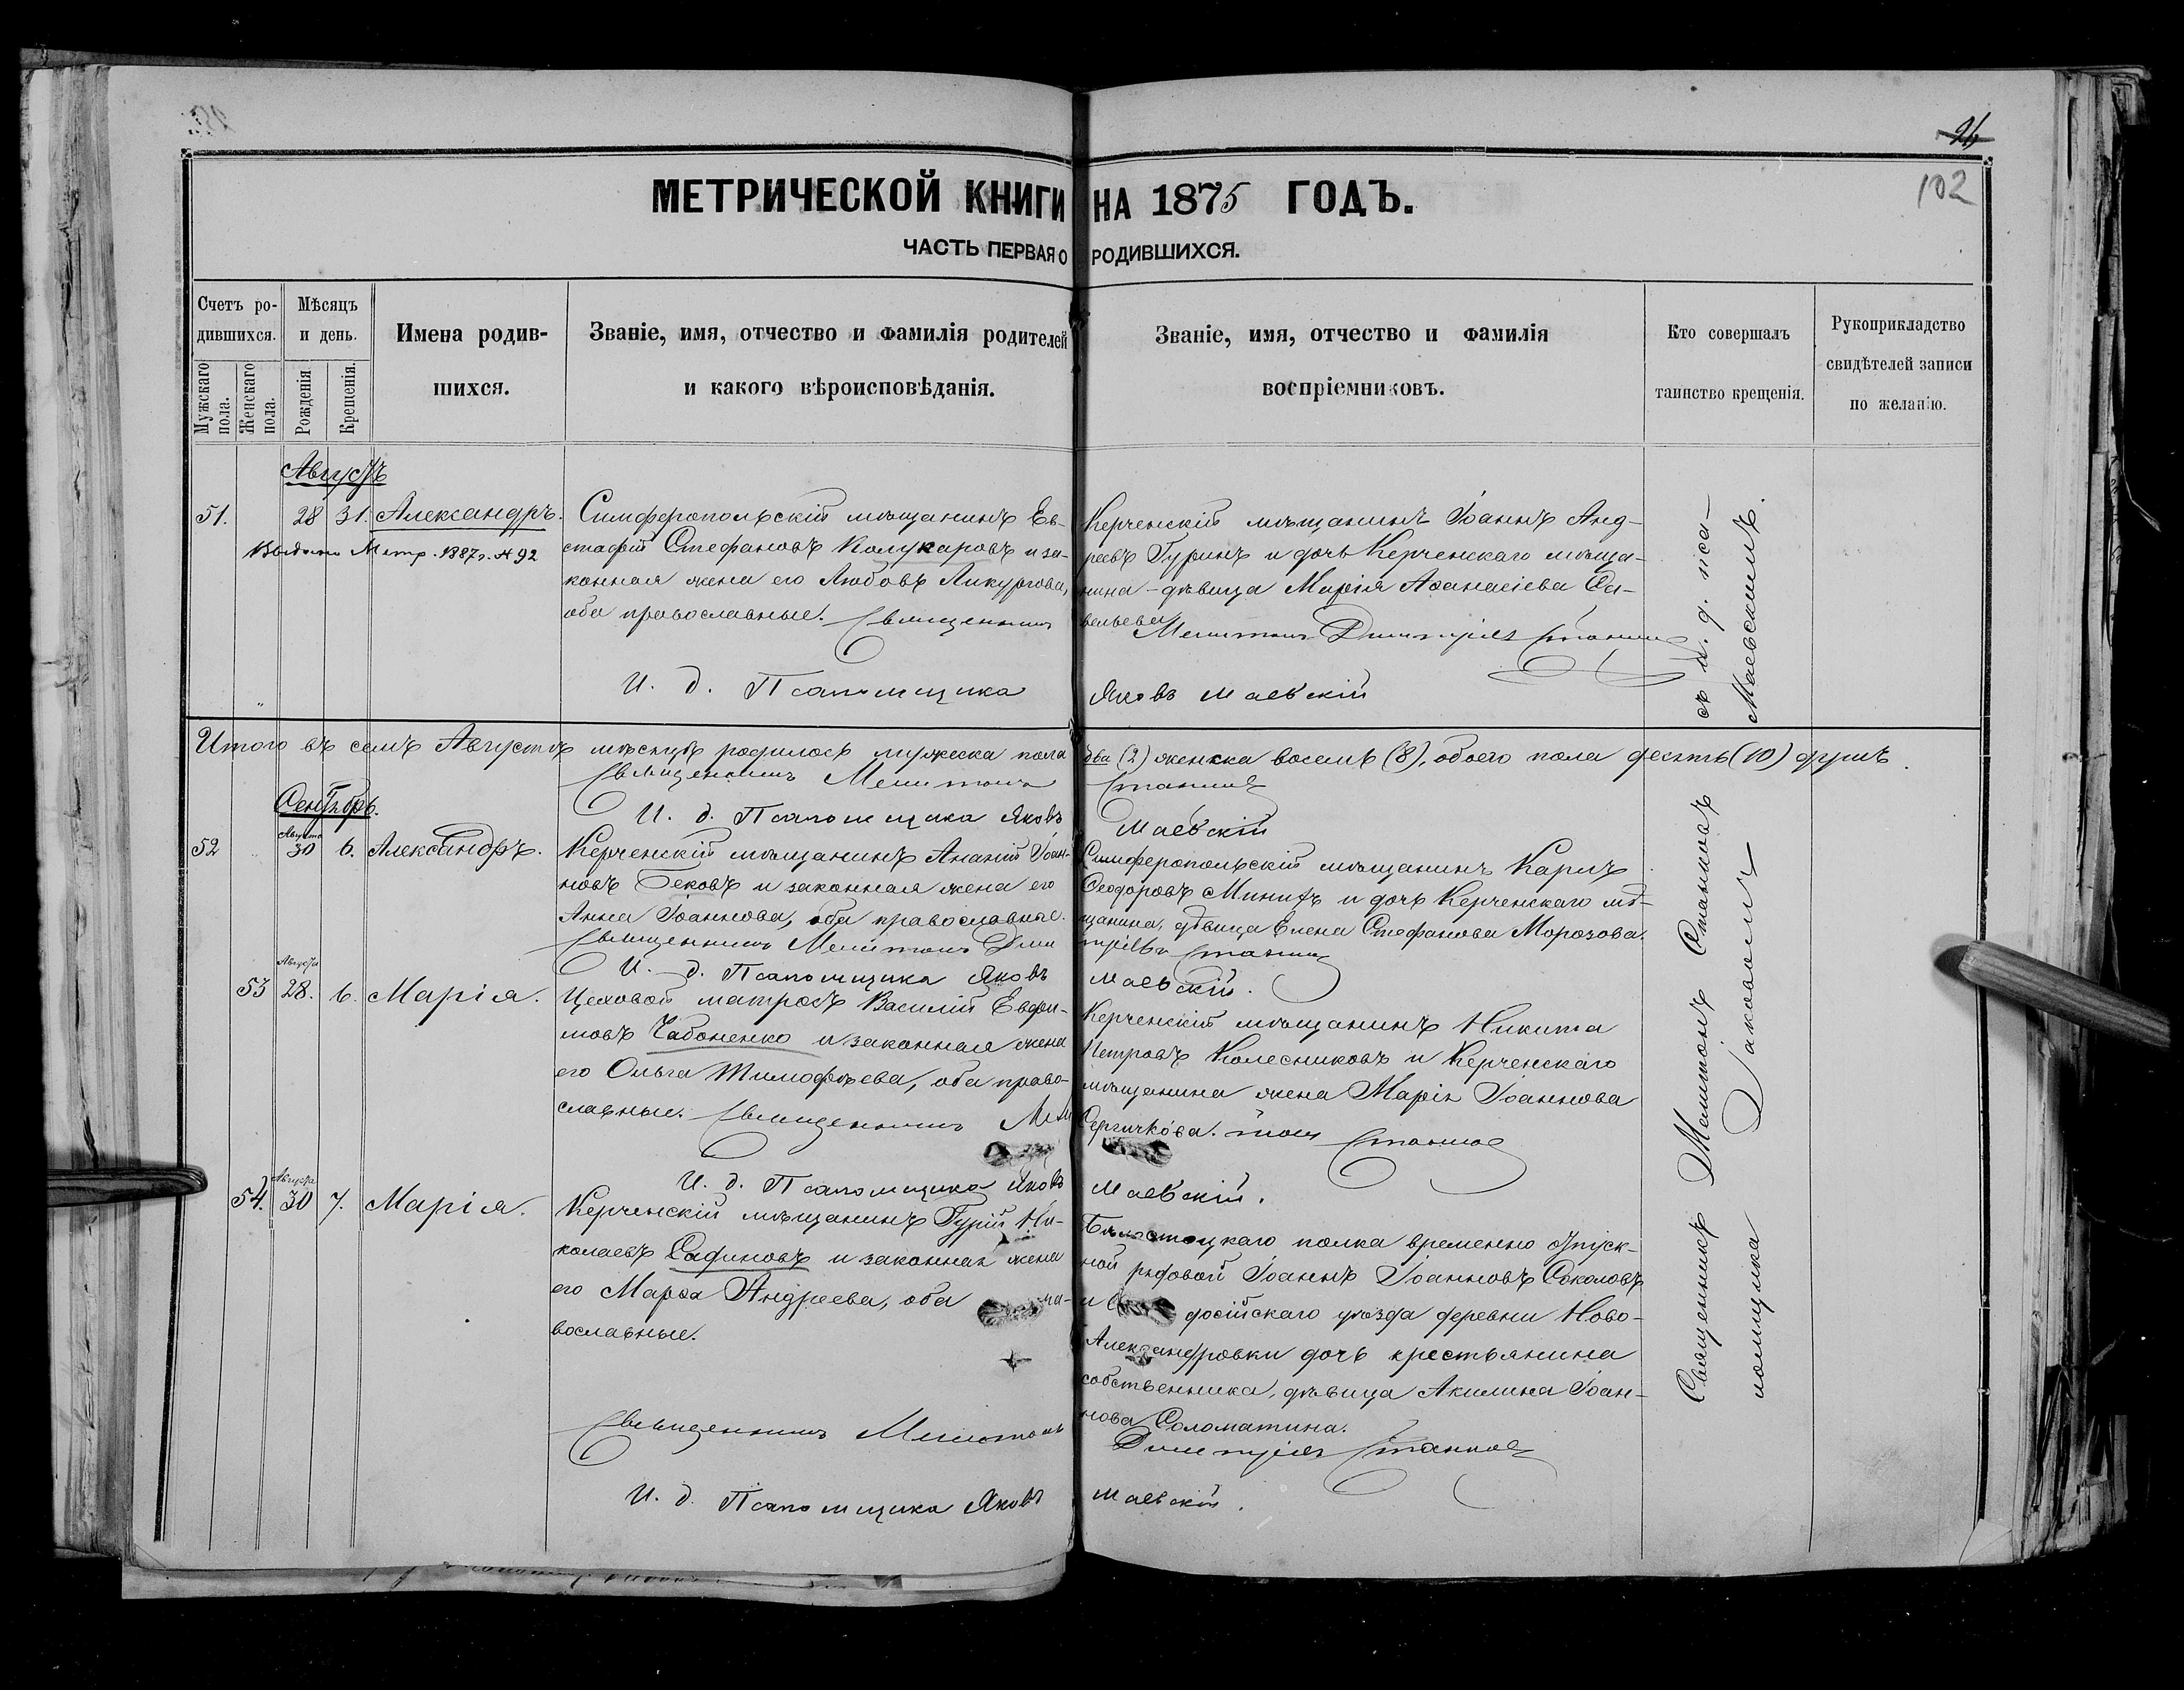 24
102
МЕТРИЧЕСКОЙ КНИГИ НА 1875 ГОДЪ.
ЧАСТЬ ПЕРВАЯ О РОДИВШИХСЯ.
Счетъ ро-
дившихся.
Мужскаго пола.
Женскаго пола.
Мѣсяцъ
и день.
Рожденія
Крещенія.
Имена родив-
шихся.
Званіе, имя, отчество и фамилія родителей
и какого вѣроисповѣданія.
Званіе, имя, отчество и фамилія
воспріемниковъ.
Кто совершалъ
таинство крещенія.
Рукоприкладство
свидѣтелей записи
по желанію.
Августъ
51. 28 31. Александръ.
Метр. 1887 г. № 92
Симферопольскій мѣщанинъ Ев-
стафій Стефановъ Калукаровъ и за-
конная жена его Любовь Ликургова,
оба православные. Священникъ
И. д. Псаломщика
Керченскій мѣщанинъ Іоаннъ Анд-
реевъ Гуринъ и дочь Керченскаго мѣща-
нина – дѣвица Марія Аѳанасіева Са-
вельева
Мелитонъ Димитріевъ Станковъ
Яковъ Маевскій
съ и. д. пса-
Маевскимъ.
Итого въ семъ Августѣ мѣсяцѣ родилось мужеска пола два (2) женска восемь (8), обоего пола десять (10) душъ.
Священникъ Мелитонъ Станковъ
И. д. Псаломщика Яковъ Маевскій
Сентябрь.
52 Августа 30 6. Александръ.
Керченскій мѣщанинъ Ананій Іоан-
новъ Бековъ и законная жена его
Анна Іоаннова, оба православные.
Священникъ Мелитонъ Дими
И. д. Псаломщика Яковъ
Симферопольскій мѣщанинъ Карпъ
Ѳеодоровъ и дочь Керченскаго мѣ-
щанина, дѣвица Елена Стефанова Морозова.
тріевъ Станковъ
Маевскій.
53 Августа 28. 6. Марія.
Цеховой матросъ Василій Евфи-
мовъ Чабоненко и законная жена
его Ольга Тимофѣева, оба право-
славные. Священникъ Мели
И. д. Псаломщика Яковъ
Керченскій мѣщанинъ Никита
Петровъ Колесниковъ и Керченскаго
мѣщанина жена Марія Іоаннова
Сергичкова. тонъ Станковъ
Маевскій.
54. Августа 30 7. Марія.
Керченскій мѣщанинъ Гурій Ни-
колаевъ Сафиновъ и законная жена
его Марѳа Андреева, оба
вославные.
Священникъ Мелитонъ
И. д. Псаломщика Яковъ
Бѣлостоцкаго полка временно отпуск-
ной рядовой Іоаннъ Іоанновъ Соколовъ
и досійскаго уѣзда деревни Ново-
Александровки дочь крестьянина
собственника, дѣвица Акилина Іоан-
нова Соломатина.
Димитріевъ Станковъ
Маевскій.
Священникъ Мелитонъ Станковъ
ломщика Яковомъ